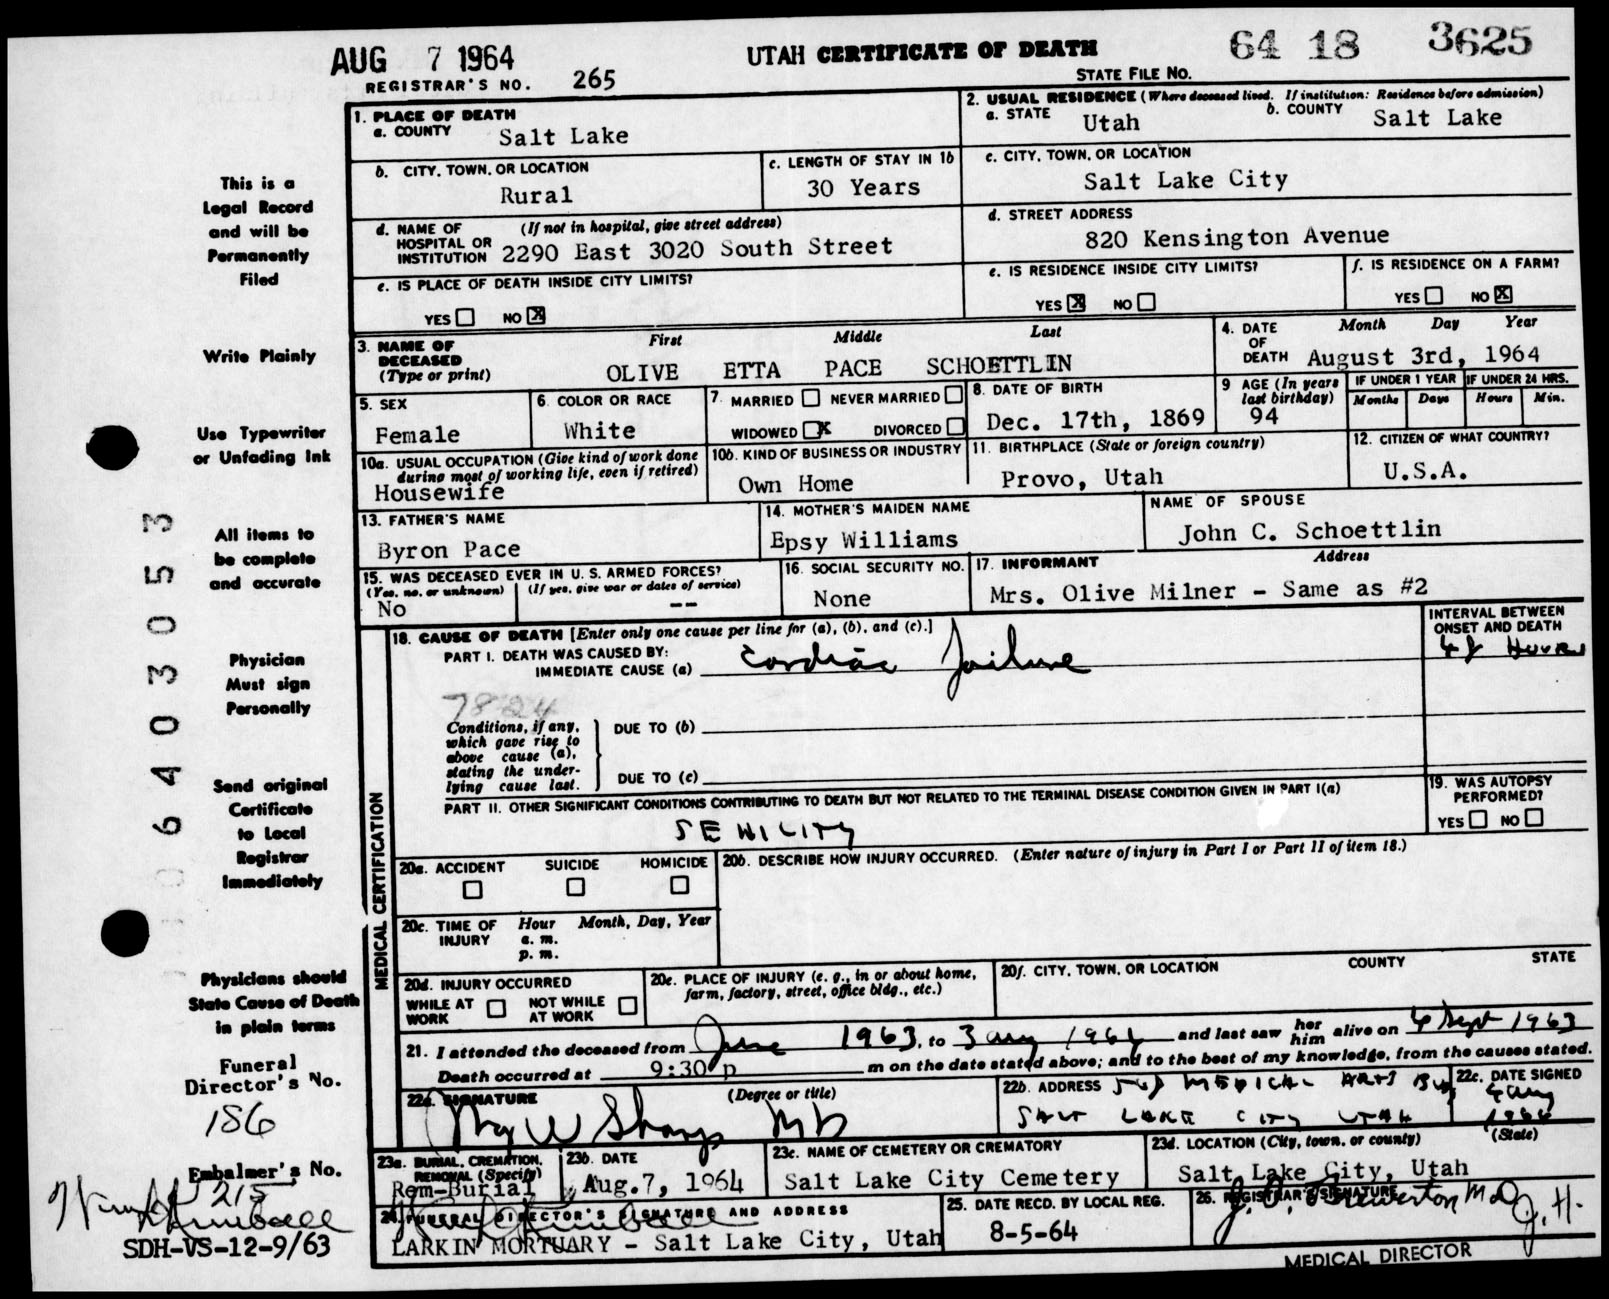 AUG 7 1964
UTAH CERTIFICATE OF DEATH
64 18 3625
REGISTRAR'S NO. 265
STATE FILE No.
1. PLACE OF DEATH
a. COUNTY Salt Lake
2. USUAL RESIDENCE (Where deceased lived. If institution: Residence before admission)
a. STATE Utah b. COUNTY Salt Lake
b. CITY, TOWN, OR LOCATION
Rural
c. LENGTH OF STAY IN 1b
30 Years
c. CITY, TOWN, OR LOCATION
Salt Lake City
d. NAME OF HOSPITAL OR INSTITUTION (If not in hospital, give street address)
2290 East 3020 South Street
d. STREET ADDRESS
820 Kensington Avenue
e. IS PLACE OF DEATH INSIDE CITY LIMITS?
YES NO X
e. IS RESIDENCE INSIDE CITY LIMITS?
YES X NO
f. IS RESIDENCE ON A FARM?
YES NO X
3. NAME OF DECEASED (Type or print)
First Middle Last
OLIVE ETTA PACE SCHOETTLIN
4. DATE OF DEATH Month Day Year
August 3rd, 1964
5. SEX
Female
6. COLOR OR RACE
White
7. MARRIED NEVER MARRIED
WIDOWED X DIVORCED
8. DATE OF BIRTH
Dec. 17th, 1869
9 AGE (In years last birthday)
94
IF UNDER 1 YEAR IF UNDER 24 HRS.
Months Days Hours Min.
10a. USUAL OCCUPATION (Give kind of work done during most of working life, even if retired)
Housewife
10b. KIND OF BUSINESS OR INDUSTRY
Own Home
11. BIRTHPLACE (State or foreign country)
Provo, Utah
12. CITIZEN OF WHAT COUNTRY?
U.S.A.
13. FATHER'S NAME
Byron Pace
14. MOTHER'S MAIDEN NAME
Epsy Williams
NAME OF SPOUSE
John C. Schoettlin
15. WAS DECEASED EVER IN U. S. ARMED FORCES?
(Yes, no, or unknown) (If yes, give war or dates of service)
No --
16. SOCIAL SECURITY NO.
None
17. INFORMANT Address
Mrs. Olive Milner - Same as #2
18. CAUSE OF DEATH [Enter only one cause per line for (a), (b), and (c).]
PART I. DEATH WAS CAUSED BY:
IMMEDIATE CAUSE (a) Cardiac Failure
INTERVAL BETWEEN ONSET AND DEATH
48 Hours
7824
Conditions, if any, which gave rise to above cause (a), stating the underlying cause last.
DUE TO (b)
DUE TO (c)
PART II. OTHER SIGNIFICANT CONDITIONS CONTRIBUTING TO DEATH BUT NOT RELATED TO THE TERMINAL DISEASE CONDITION GIVEN IN PART I(a)
SENILITY
19. WAS AUTOPSY PERFORMED?
YES NO
20a. ACCIDENT SUICIDE HOMICIDE
20b. DESCRIBE HOW INJURY OCCURRED. (Enter nature of injury in Part I or Part II of item 18.)
20c. TIME OF INJURY Hour Month, Day, Year
a. m.
p. m.
20d. INJURY OCCURRED
WHILE AT WORK NOT WHILE AT WORK
20e. PLACE OF INJURY (e. g., in or about home, farm, factory, street, office bldg., etc.)
20f. CITY, TOWN, OR LOCATION COUNTY STATE
21. I attended the deceased from June 1963, to 3 Aug 1964 and last saw her him alive on 6 Sept 1963
Death occurred at 9:30 p m on the date stated above; and to the best of my knowledge, from the causes stated.
22a. SIGNATURE (Degree or title)
W Sharp MD
22b. ADDRESS MEDICAL ARTS
SALT LAKE CITY UTAH
22c. DATE SIGNED
Aug 1964
23a. BURIAL, CREMATION, REMOVAL (Specify)
Rem-Burial
23b. DATE
Aug.7, 1964
23c. NAME OF CEMETERY OR CREMATORY
Salt Lake City Cemetery
23d. LOCATION (City, town, or county) (State)
Salt Lake City, Utah
24. FUNERAL DIRECTOR'S SIGNATURE AND ADDRESS
LARKIN MORTUARY - Salt Lake City, Utah
25. DATE RECD. BY LOCAL REG.
8-5-64
26. REGISTRAR'S SIGNATURE
MEDICAL DIRECTOR
MEDICAL CERTIFICATION
This is a
Legal Record
and will be
Permanently
Filed
Write Plainly
Use Typewriter
or Unfading Ink
All items to
be complete
and accurate
Physician
Must sign
Personally
Send original
Certificate
to Local
Registrar
Immediately
Physicians should
State Cause of Death
in plain terms
Funeral
Director's No.
186
Embalmer's No.
215
SDH-VS-12-9/63
0640303053